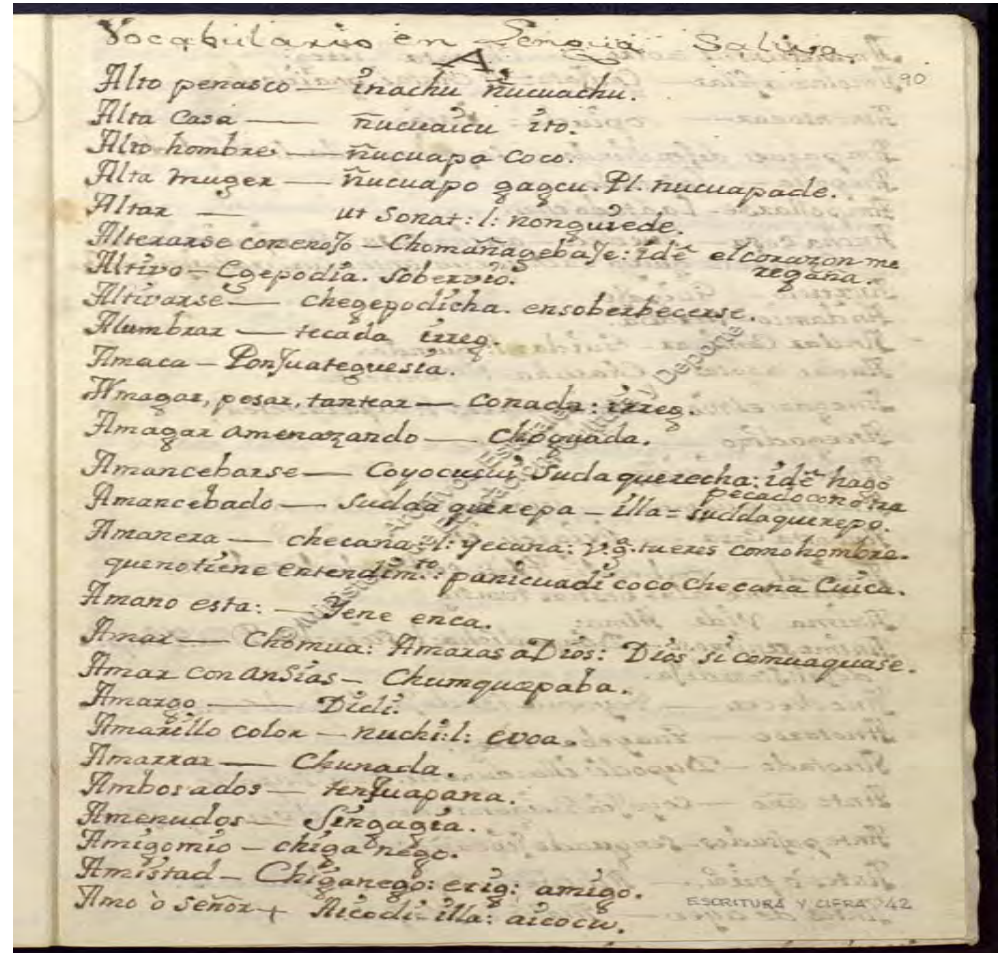 Vocabulario en Lengua Saliva.
A,
90
Alto penasco — inachu ñucuachu.
Alta Casa — ñucuaicu ito.
Alto hombre — ñucuapa coco.
Alta muger — ñucuapo gagcu. Pl. nucuapade.
Altar — ut Sonat: l: nonguiede.
Alterarse con enojo — Chomañagebaje: idē el corazon me
regaña.
Altivo — Cgepodia. Sobervio.
Altivarse — chegepodicha. ensoberbecerse.
Alumbrar — tecada irreg.
Amaca — Ponjuateguesta.
Amagar, pesar, tantear — conada: irreg.
Amagar amenazando — choguada.
Amancebarse — Coyocucui Suda querecha: idē hago
pecado con otra
Amancebado — Suddaquerepa — illa = suddaquerepo.
Amanera — checana: l: yecana: v.g. tu eres como hombre.
que no tiene entendim.to: panicuadi coco checana Cuica.
Amano esta: — Yene enca.
Amar — Chomua: Amaras a Dios: Dios si comuaquase.
Amar con ansias — Chumquæpaba.
Amargo — Dieli.
Amarillo color — nuchi: l: evoa.
Amarrar — Chunada.
Ambos ados — tenjuapana.
Amenudos — Singagia.
Amigo mio — chiganego.
Amistad — Chiganego: erig: amigo.
Amo ò señor + Aicodi — illa: aicocu.
ESCRITURA Y CIFRA 42